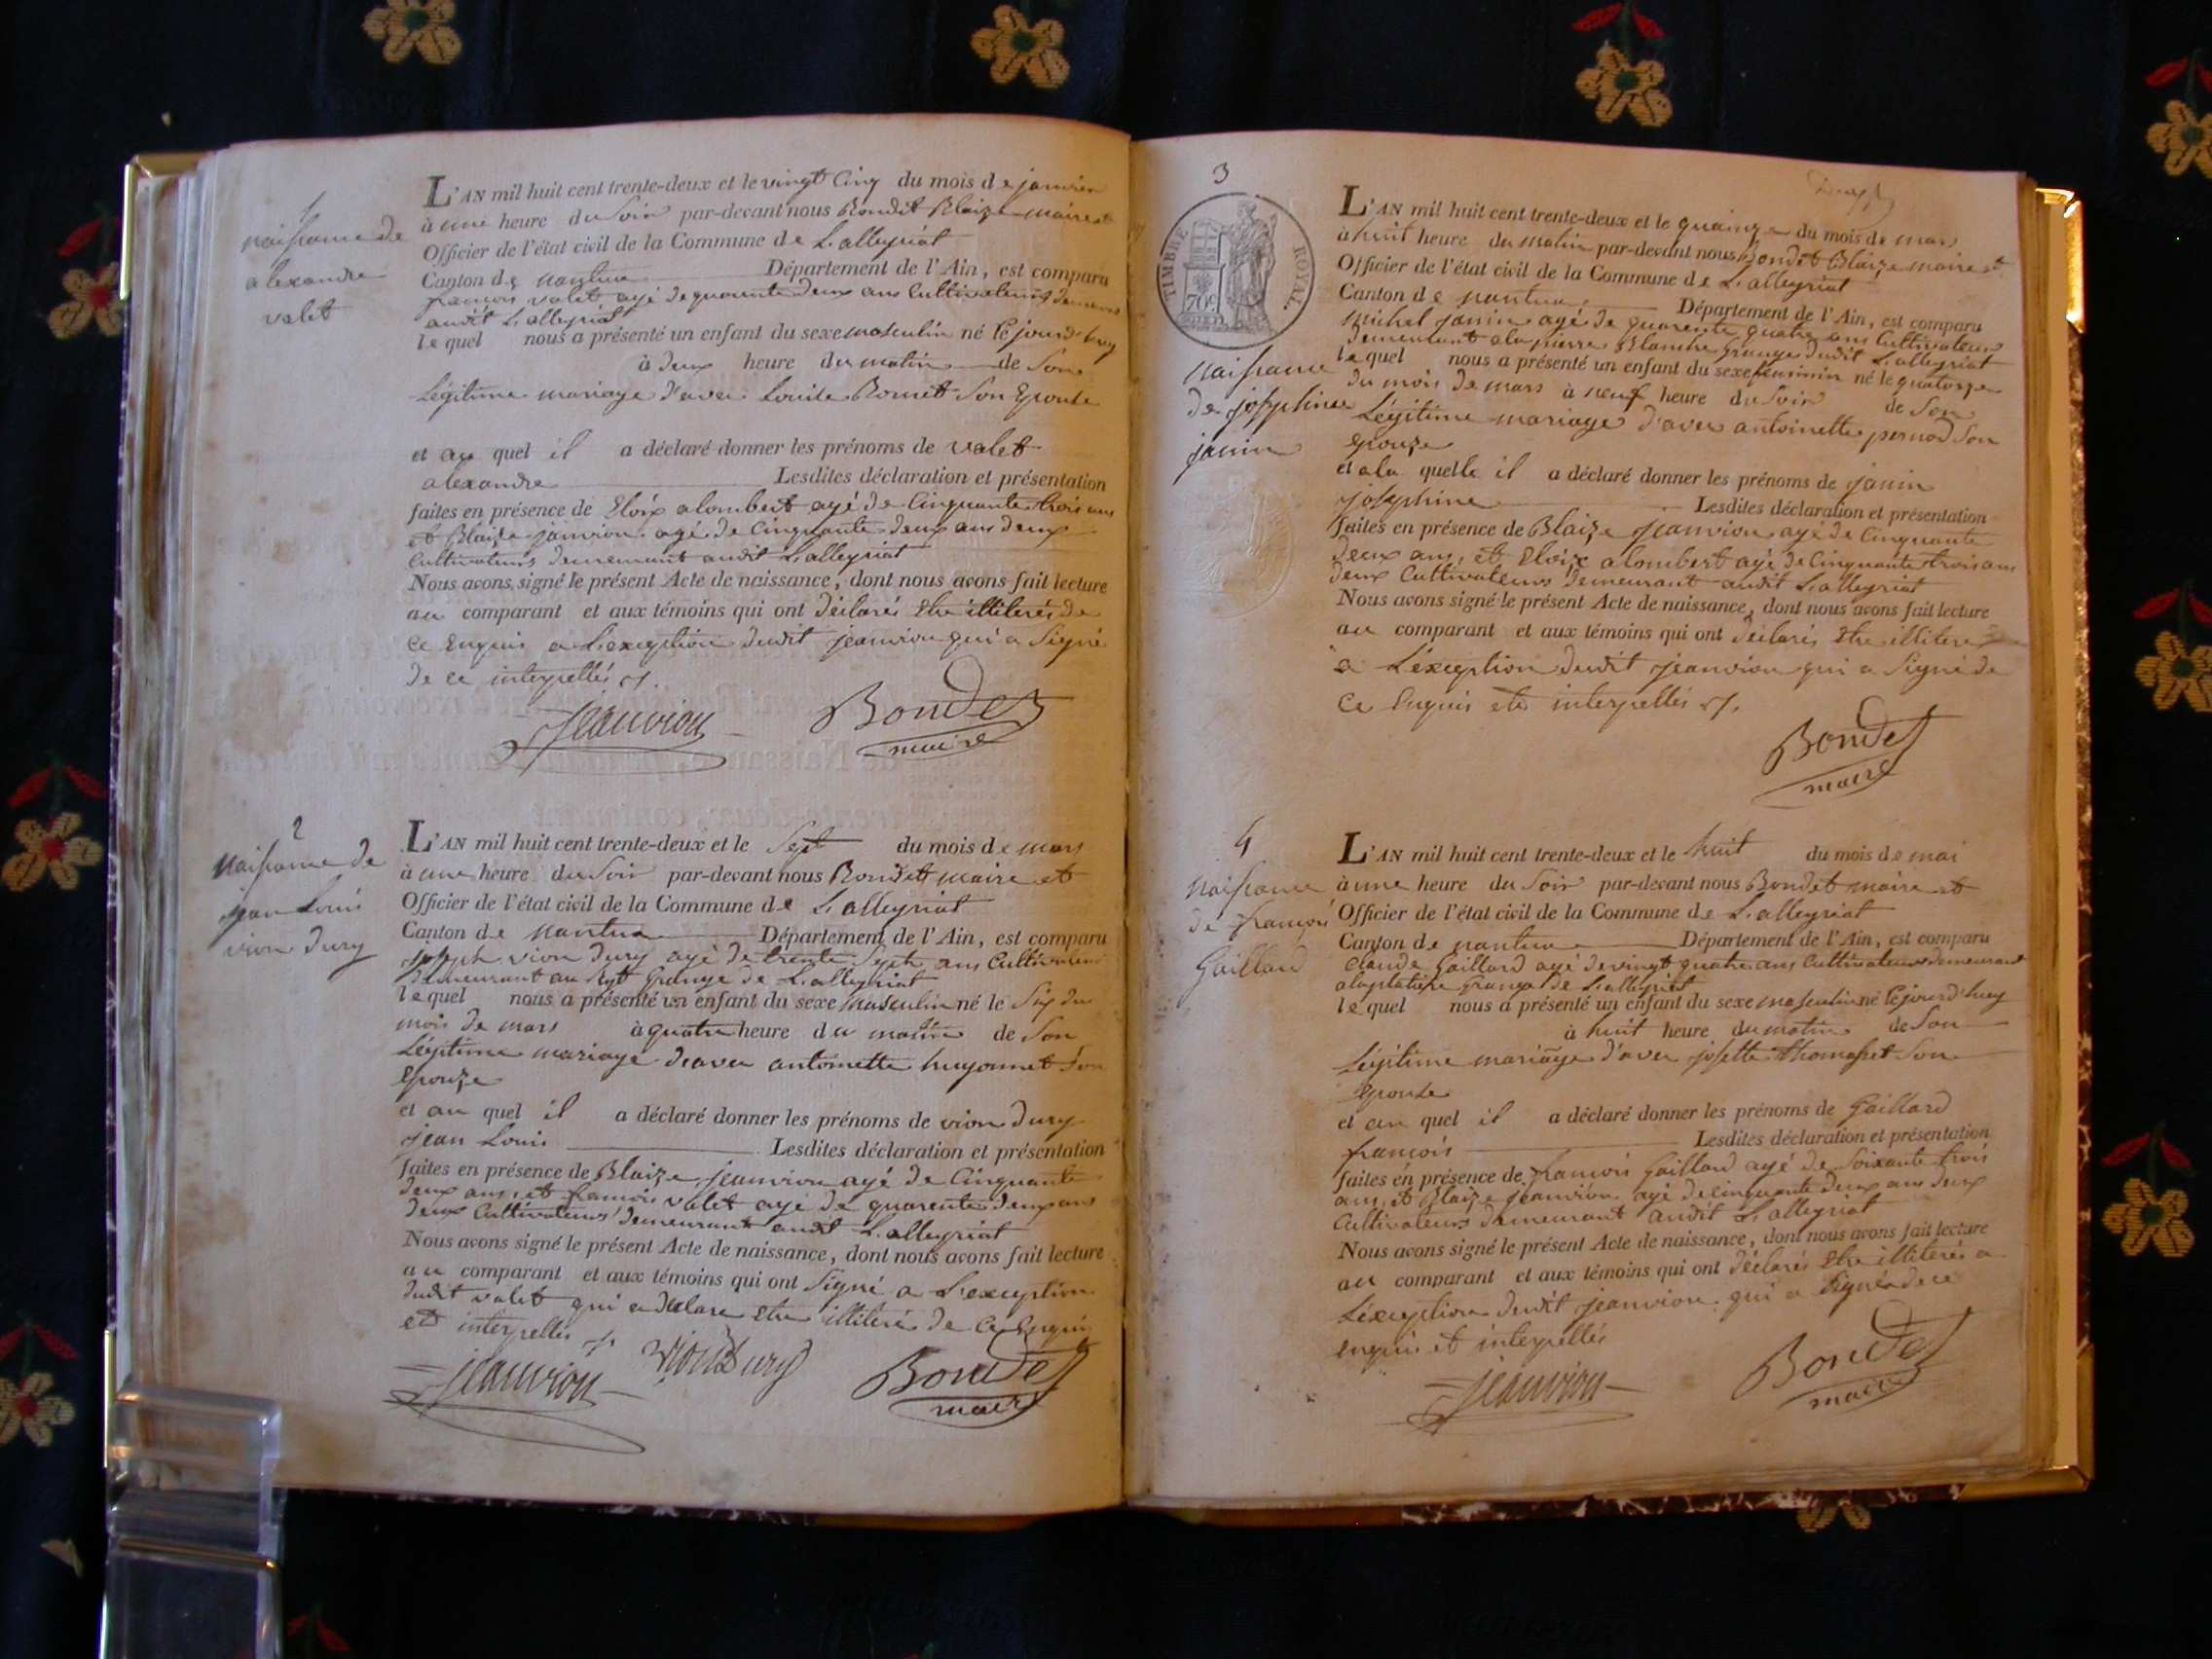 1
naissance de
alexandre
valet
L'AN mil huit cent trente-deux et le vingt Cinq du mois de janvier
à une heure du Soir par-devant nous Bondet Blaize maire et
Officier de l'état civil de la Commune de L'alleyriat
Canton de nantua Département de l'Ain, est comparu
francois valet agé de quarente deux ans Cultivateur demeurant
audit L'alleyriat
lequel nous a présenté un enfant du sexe masculin né le jourd'huy
à deux heure du matin de Son
Légitime mariage d'avec Louise Son Epouse
et au quel il a déclaré donner les prénoms de valet
alexandre Lesdites déclaration et présentation
faites en présence de Eloix alombert agé de Cinquante trois ans
et Blaize janvion agé de Cinquante deux ans deux
Cultivateurs demeurant audit L'alleyriat
Nous avons signé le présent Acte de naissance, dont nous avons fait lecture
au comparant et aux témoins qui ont déclarés Etre illiterés de
ce Enquis a L'exception dudit jeanvion qui a Signé
de ce interpellés
Jeanvion Bondet
maire
2
naissance de
jean Louis
vion dury
L'AN mil huit cent trente-deux et le Sept du mois de mars
à une heure du Soir par-devant nous Bondet maire et
Officier de l'état civil de la Commune de L'alleyriat
Canton de nantua Département de l'Ain, est comparu
joseph vion dury agé de trente Sept ans Cultivateur
demeurant au grange de L'alleyriat
lequel nous a présenté un enfant du sexe masculin né le Six du
mois de mars à quatre heure du matin de Son
Légitime mariage d'avec antoinette huyonnet Son
Epouze
et au quel il a déclaré donner les prénoms de vion dury
jean Louis Lesdites déclaration et présentation
faites en présence de Blaize jeanvion agé de Cinquante
deux ans, et francois valet agé de quarente deux ans
deux Cultivateurs demeurant audit L'alleyriat
Nous avons signé le présent Acte de naissance, dont nous avons fait lecture
au comparant et aux témoins qui ont Signé a L'exception
dudit valet qui a declare Etre illiteré de ce Enquis
et interpellés
Jeanvion vion Dury Bondet
maire
3
TIMBRE ROYAL.
70 c.
naissance
de josephine
janin
L'AN mil huit cent trente-deux et le quainze du mois de mars
à huit heure du matin par-devant nous Bondet Blaize maire et
Officier de l'état civil de la Commune de L'alleyriat
Canton de nantua Département de l'Ain, est comparu
Michel janin agé de quarente quatre ans Cultivateur
demeurant a la pierre Blanche Grange dudit L'alleyriat
lequel nous a présenté un enfant du sexe feminin né le quatorze
du mois de mars à neuf heure du Soir de Son
Légitime mariage d'avec antoinette pernod Son
epouze
et a la quelle il a déclaré donner les prénoms de janin
josephine Lesdites déclaration et présentation
faites en présence de Blaize Jeanvion agé de Cinquante
deux ans, et Eloix alombert agé de Cinquante trois ans
deux Cultivateurs demeurant audit L'alleyriat
Nous avons signé le présent Acte de naissance, dont nous avons fait lecture
au comparant et aux témoins qui ont déclarés Etre illiterés
a L'exception dudit jeanvion qui a Signé de
ce Enquis et interpellés
Bondet
maire
4
naissance
de francois
Gaillard
L'AN mil huit cent trente-deux et le huit du mois de mai
à une heure du Soir par-devant nous Bondet maire et
Officier de l'état civil de la Commune de L'alleyriat
Canton de nantua Département de l'Ain, est comparu
Claude Gaillard agé de vingt quatre ans Cultivateur demeurant
Grange de L'alleyriat
lequel nous a présenté un enfant du sexe masculin né le jourd'huy
à huit heure du matin de Son
Légitime mariage d'avec josette thomasset Son
Epouse
et au quel il a déclaré donner les prénoms de Gaillard
francois Lesdites déclaration et présentation
faites en présence de francois Gaillard agé de Soixante trois
ans, et Blaize Jeanvion agé de cinquante deux ans deux
Cultivateurs demeurant audit L'alleyriat
Nous avons signé le présent Acte de naissance, dont nous avons fait lecture
au comparant et aux témoins qui ont déclarés Etre illiterés a
L'exception dudit jeanvion qui a Signé de ce
enquis et interpellés
Jeanvion Bondet
maire